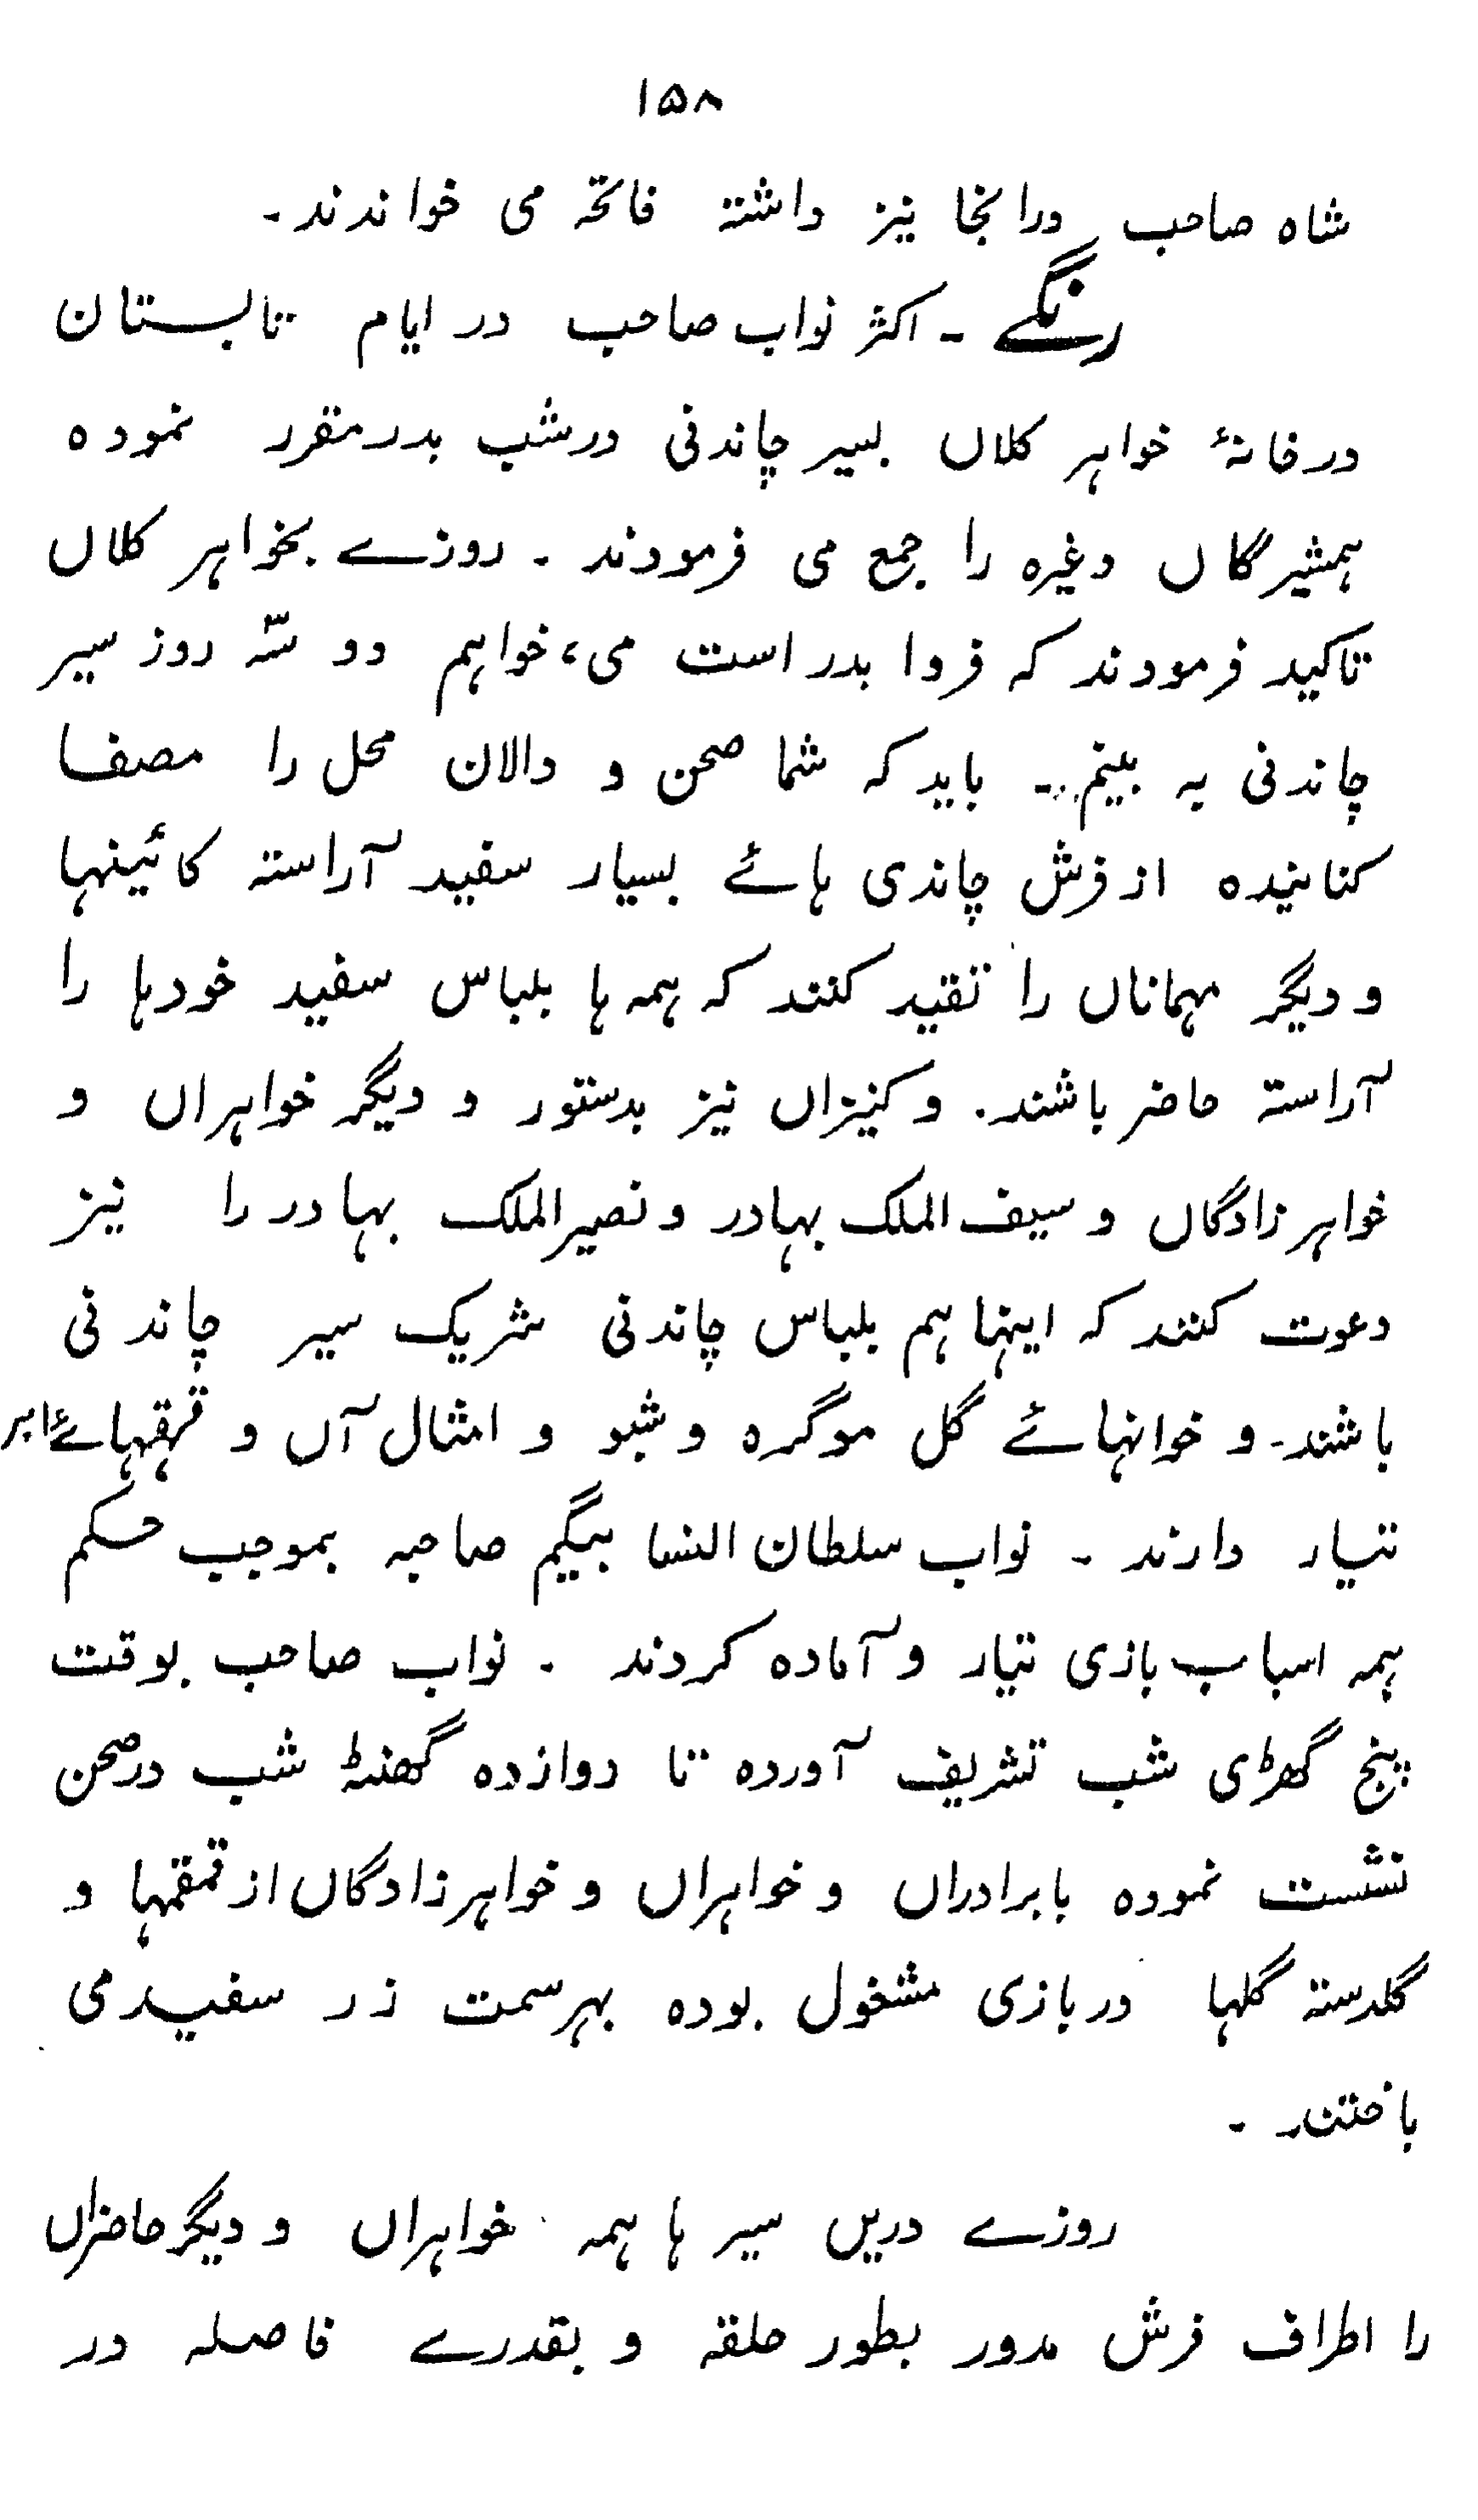 ۱۵۸
شاہ صاحب درانجا نیز داشتہ فاتحہ می خواندند۔
رنگے ۔ اکثر نواب صاحب در ایام تابستان
درخانۂ خواہر کلاں بسیر چاندنی درشب بدر مقرر نمودہ
ہمشیرگاں وغیرہ را جمع می فرمودند ۔ روزے بخواہر کلاں
تاکید فرمودند کہ فردا بدر است می، خواہم دو سہ روز سیر
چاندنی بہ بینم ۔ باید کہ شما صحن و دالان محل را مصفا
کنانیدہ از فرش چاندی ہائے بسیار سفید آراستہ کائینہا
و دیگر مہماناں را تقید کنند کہ ہمہ ہا بلباس سفید خودہا را
آراستہ حاضر باشند۔ و کنیزاں نیز بدستور و دیگر خواہراں و
خواہر زادگاں و سیف الملک بہادر و نصیر الملک بہادر را نیز
دعوت کنند کہ اینہا ہم بلباس چاندنی شریک سیر چاندنی
باشند۔ و خوانہائے گل موگرہ و شبو و امثال آں و قہقہائے ابر
تیار دارند ۔ نواب سلطان النسا بیگم صاحبہ بموجب حکم
ہمہ اسباب بازی تیار و آمادہ کردند ۔ نواب صاحب بوقت
پنج گھڑی شب تشریف آوردہ تا دوازدہ گھنٹہ شب درصحن
نشست نمودہ بابرادراں و خواہراں و خواہرزادگاں از قمقمہا و
گلدستہ گلہا در بازی مشغول بودہ بہرسمت زر سفید می
باختند ۔
روزے دریں سیر ہا ہمہ خواہراں و دیگر حاضراں
را اطراف فرش مدور بطور حلقہ و بقدرے فاصلہ در